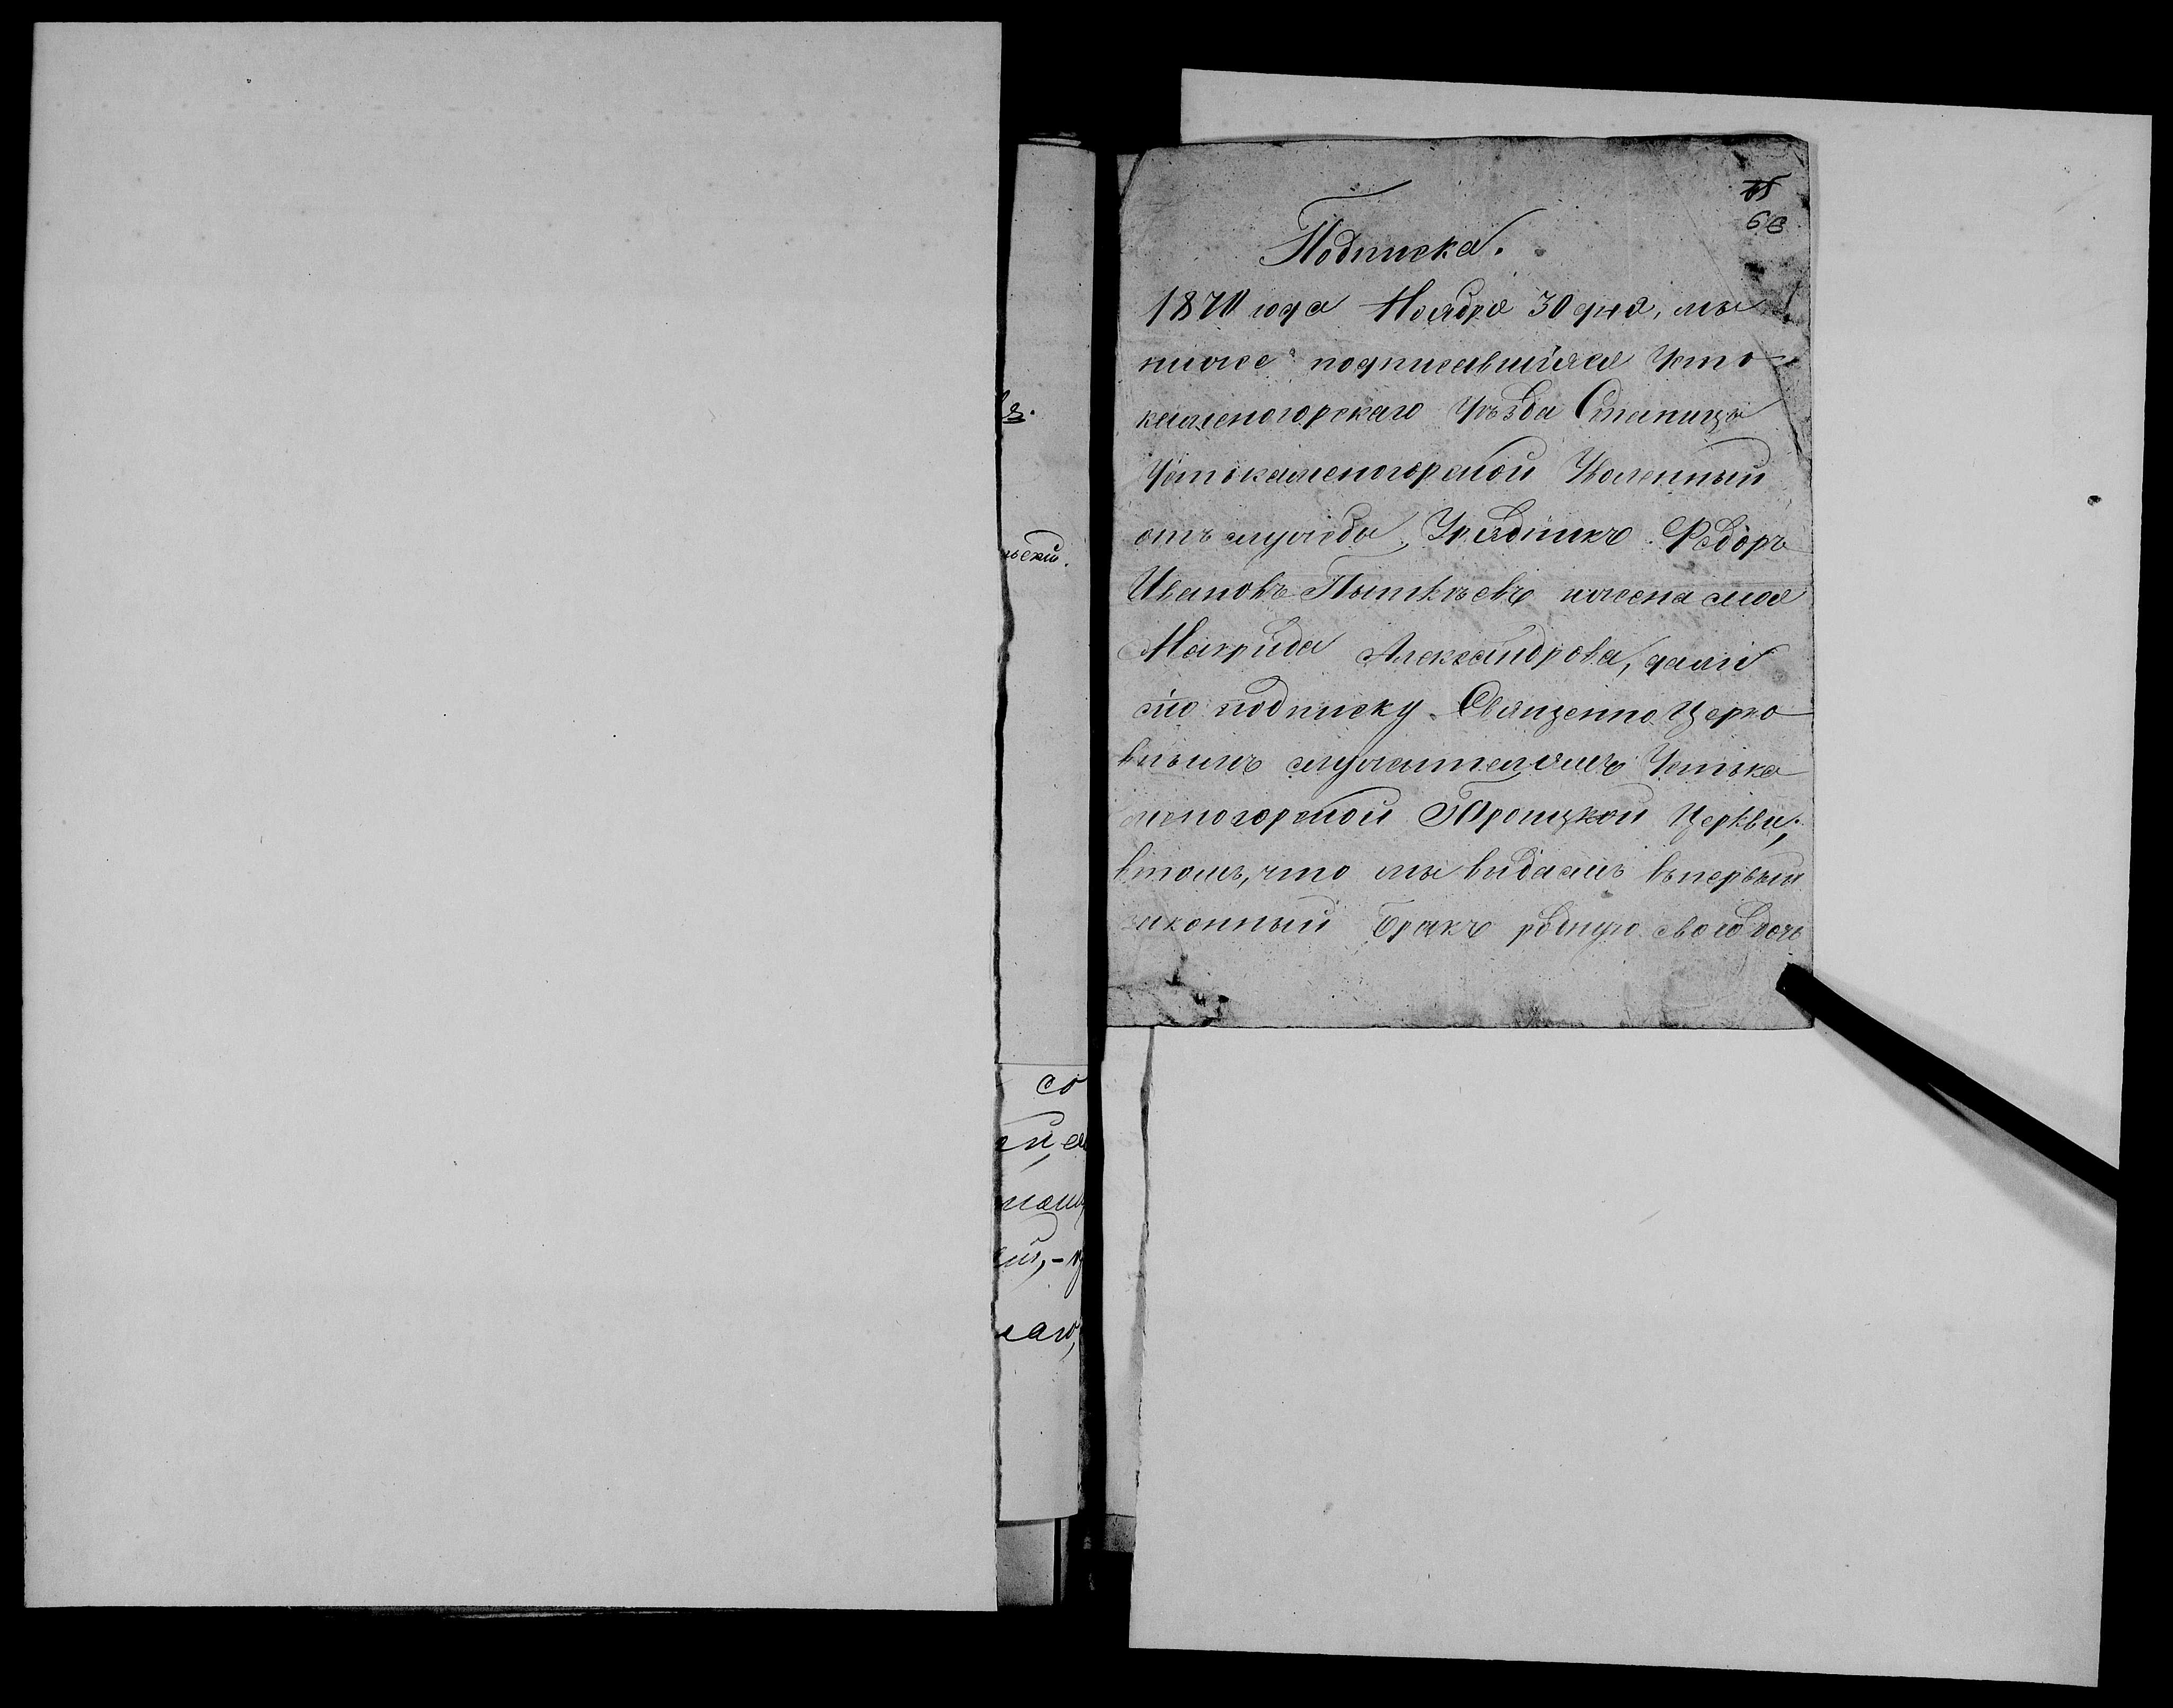 65
66
Подписка.
1870 года Ноября 30 дня, мы
ниже подписавшіяся Усть-
каменогорскаго Уѣзда Станицы
Устькаменогорской Уволенный
отъ службы, Урядникъ Федоръ
Ивановъ и жена моя
Макрида Александрова, дали
сію подписку Священно Церко
внымъ служителямъ Устька
меногорской Троицкой Церкви,
втомъ, что мы выдаемъ въ первый
законный бракъ родную свою дочь